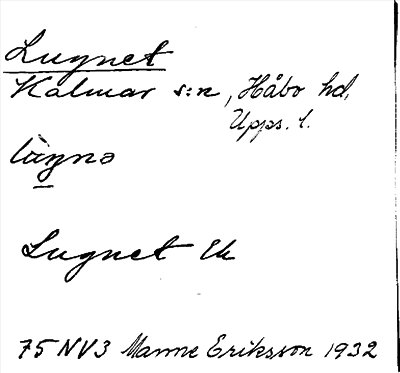 Lugnet
Kalmar s:n, Håbo hd,
Upps. l.
lùgnə
Lugnet Ek
75 NV3 Manne Eriksson 1932